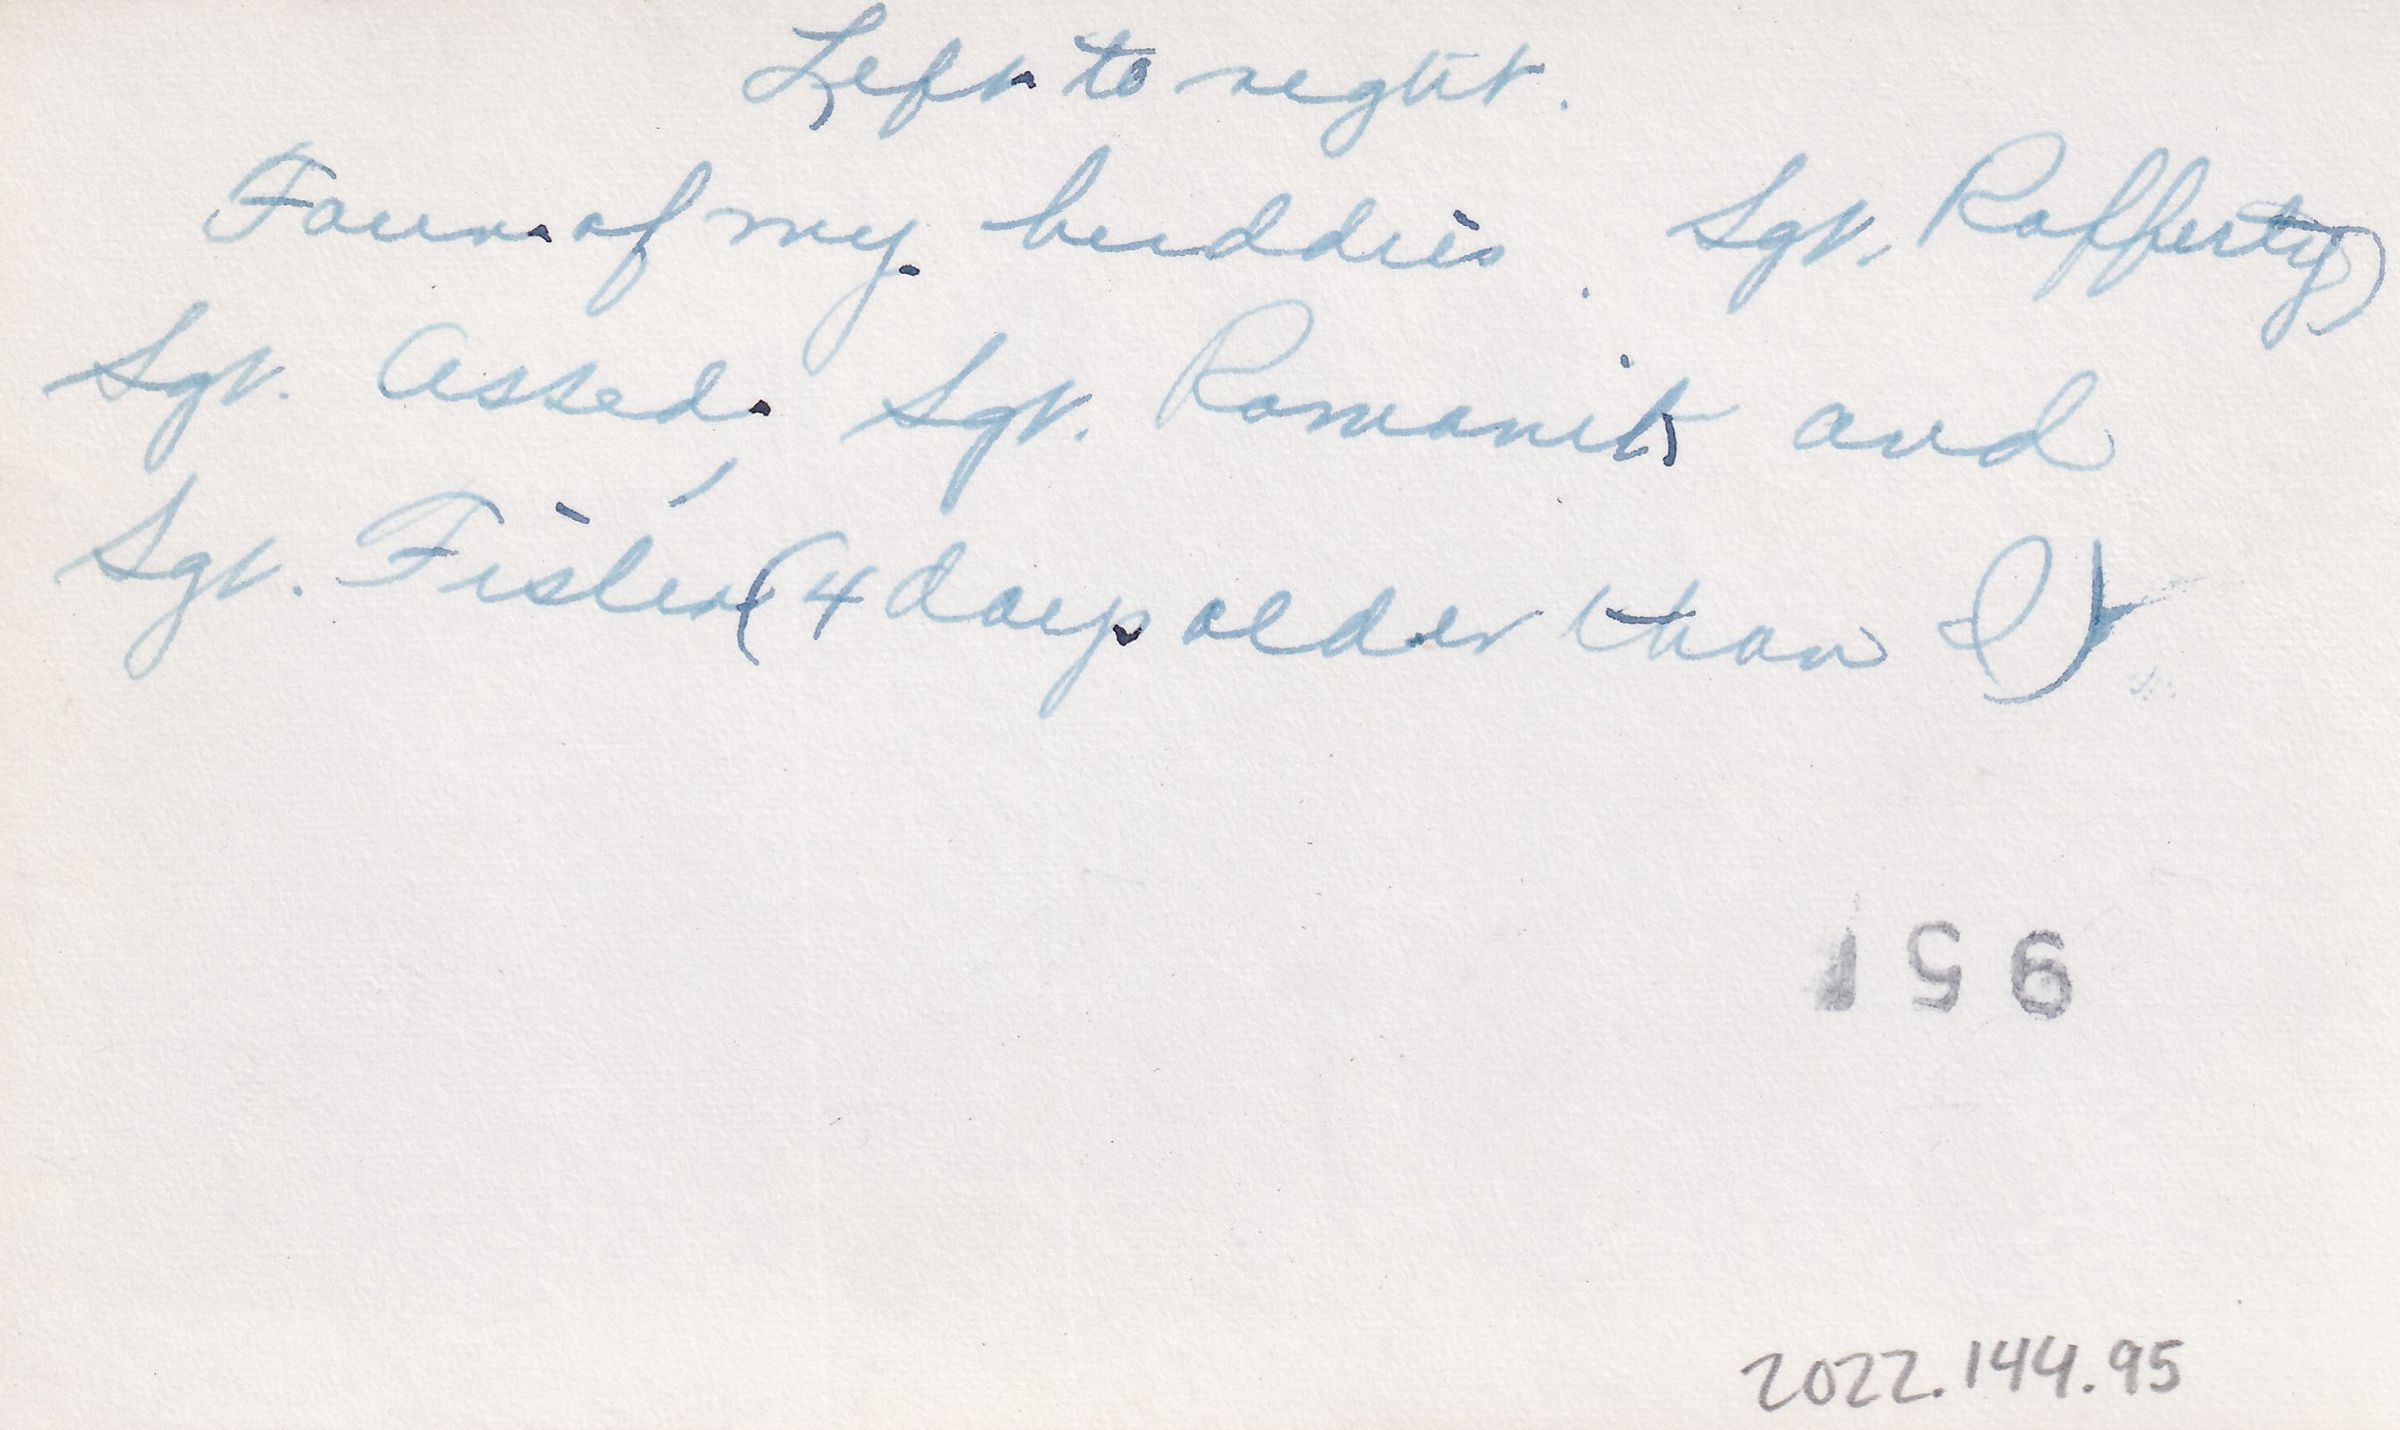 Left to right.
Four of my buddies. Sgt. Rafferty,
Sgt. Assed, Sgt. Romanik and
Sgt. Fisler (4 days older than I).
951
2022.144.95